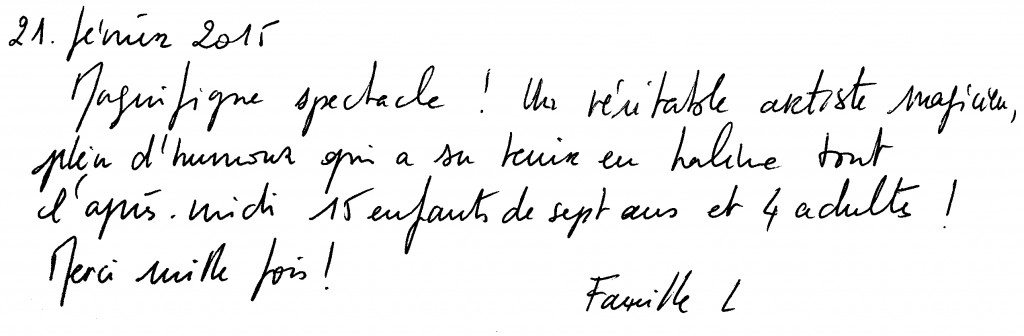 21. février 2015
Magnifique spectacle ! Un véritable artiste magicien,
plein d'humour qui a su tenir en haleine tout
l'après-midi 15 enfants de sept ans et 4 adults !
Merci mille fois !
Famille L